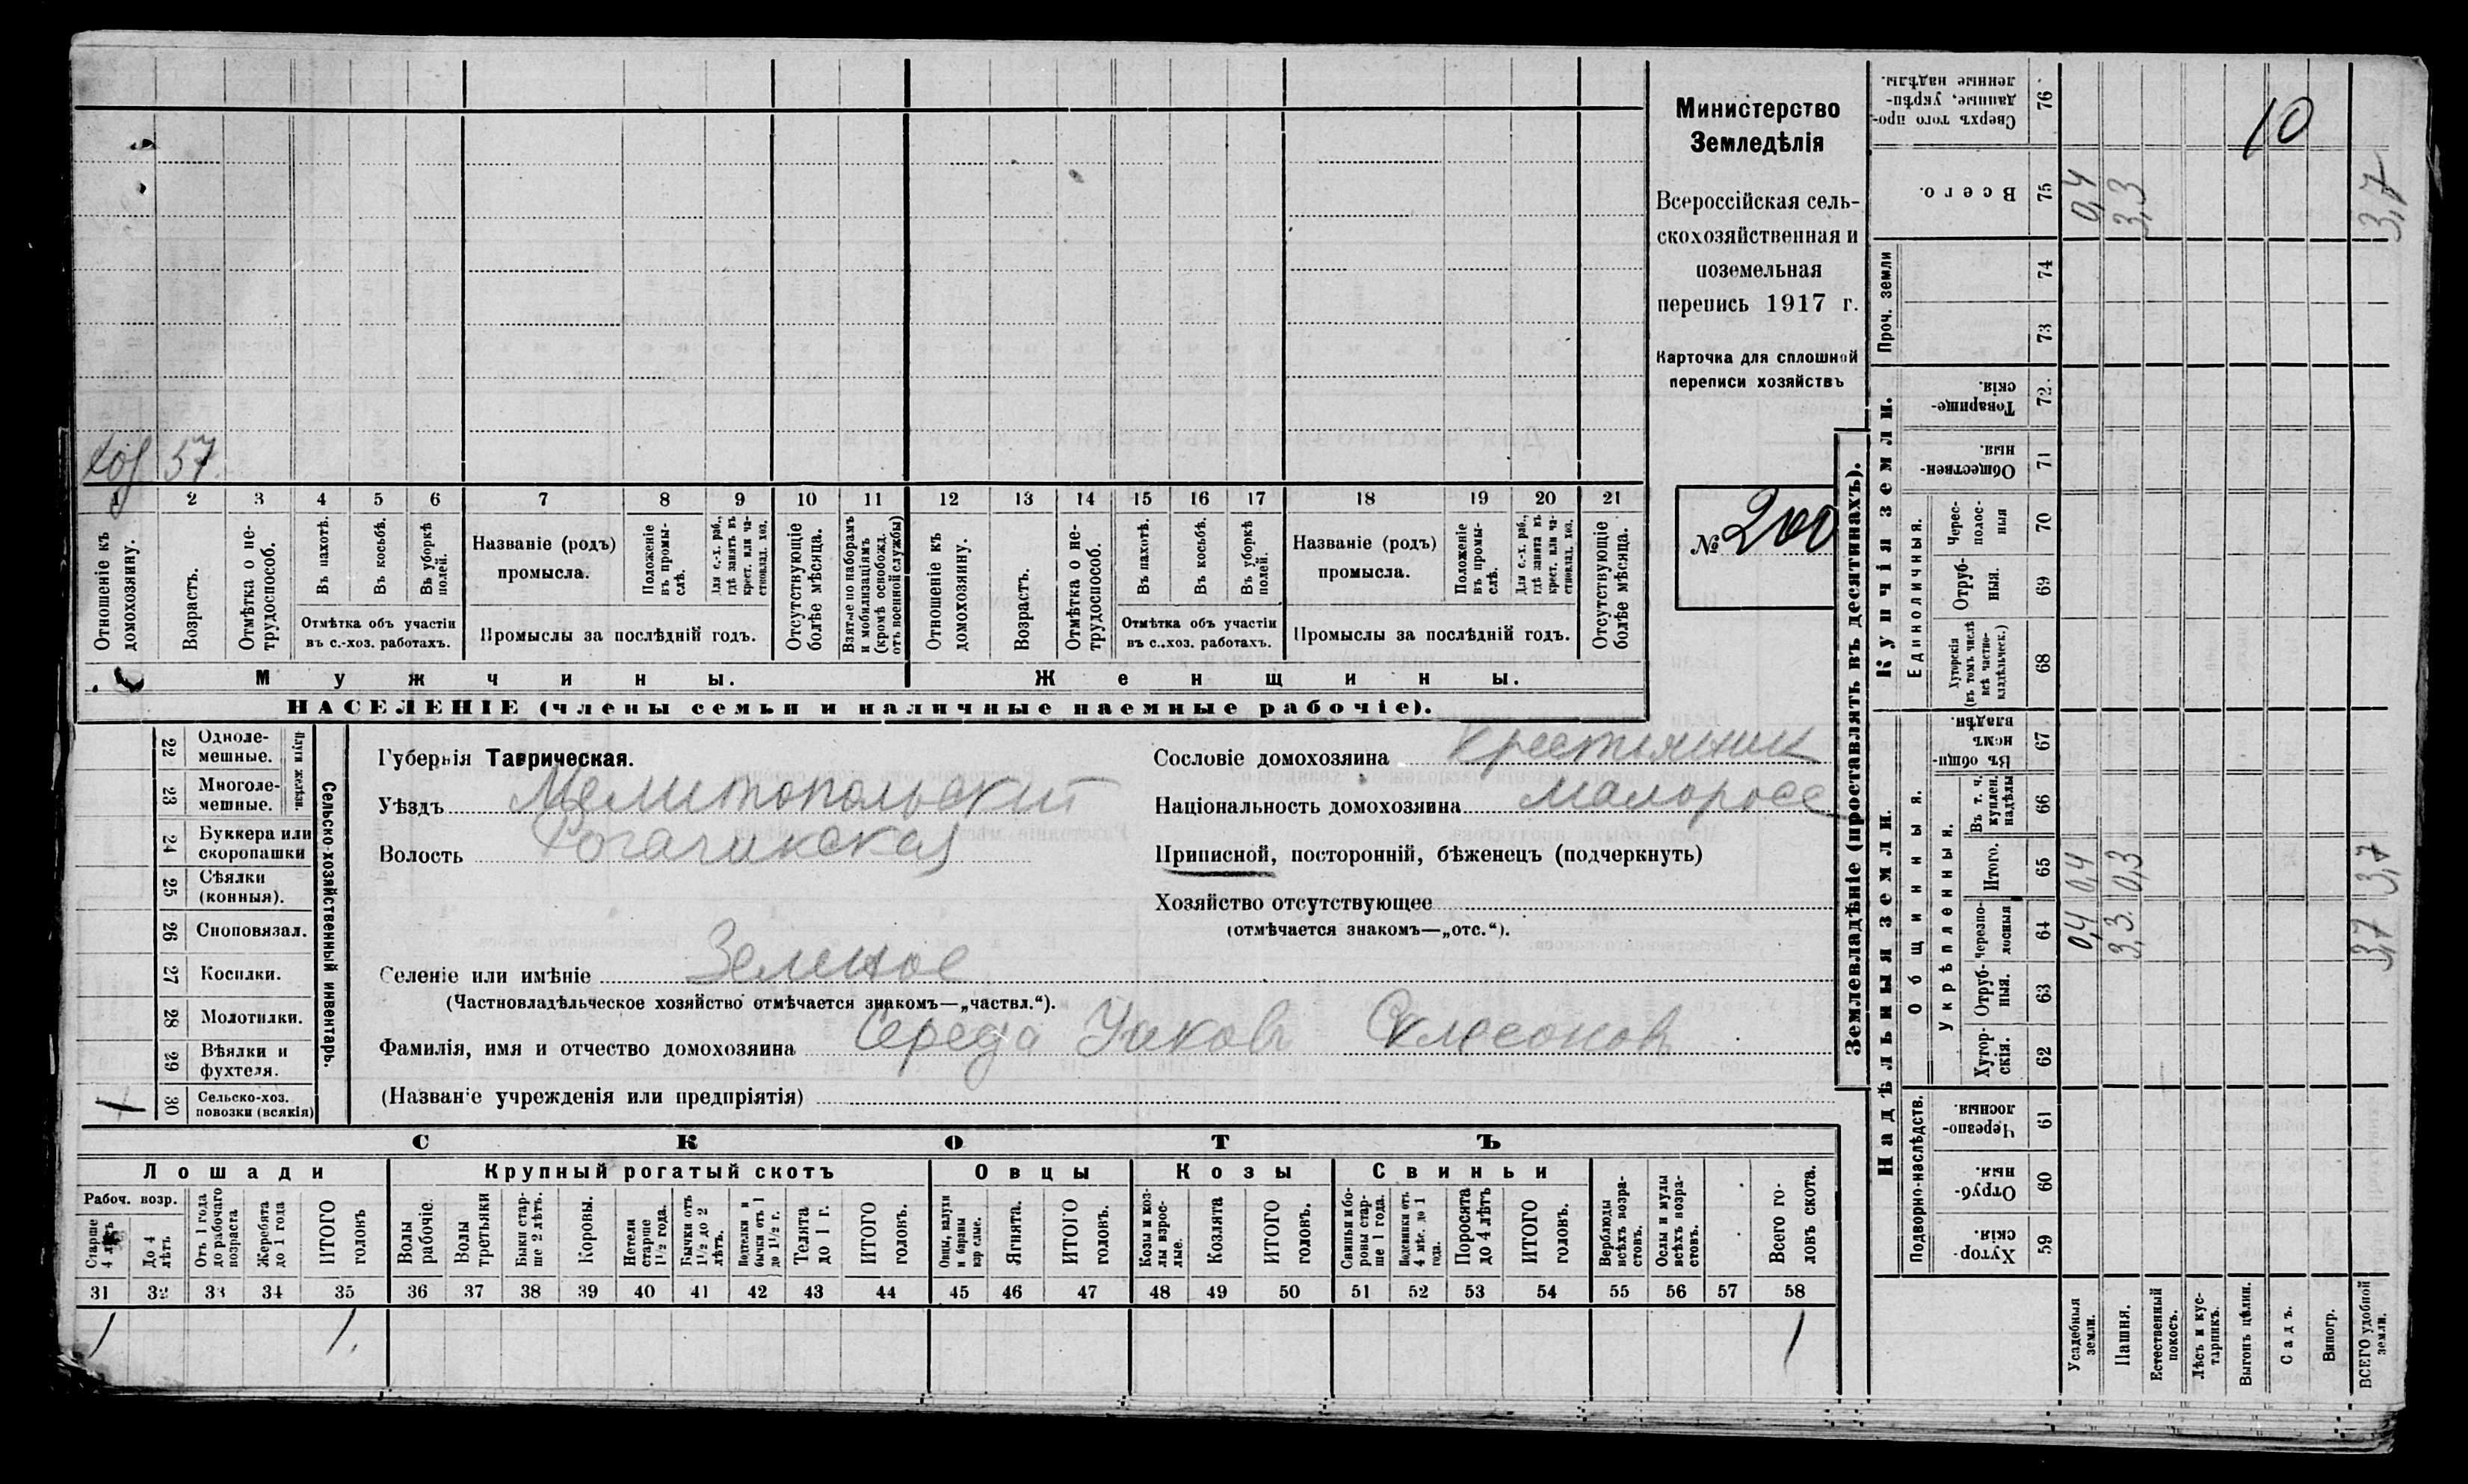 Министерство
Земледѣлія
Всероссійская сель-
скохозяйственная и
поземельная
перепись 1917 г.
Карточка для сплошной
переписи хозяйствъ
№ 200
хоз 57.
1 2 3 4 5 6 7 8 9 10 11 12 13 14 15 16 17 18 19 20 21
Отношеніе къ домохозяину.
Возрастъ.
Отмѣтка о не-трудоспособ.
Въ пахотѣ.
Въ косьбѣ.
Въ уборкѣ полей.
Отмѣтка объ участіи
въ с.-хоз. работахъ.
Названіе (родъ)
промысла.
Положеніе въ промы-слѣ.
Для с.-х. раб., гдѣ занятъ въ крест. или ча-стновлад. хоз.
Промыслы за послѣдній годъ.
Отсутствующіе болѣе мѣсяца.
Взятые по наборамъ и мобилизаціямъ (кромѣ освобожд. отъ военной службы)
Отношеніе къ домохозяину.
Возрастъ.
Отмѣтка о не-трудоспособ.
Въ пахотѣ.
Въ косьбѣ.
Въ уборкѣ полей.
Отмѣтка объ участіи
въ с.-хоз. работахъ.
Названіе (родъ)
промысла.
Положеніе въ промы-слѣ.
Для с.-х. раб., гдѣ занята въ крест. или ча-стновлад. хоз.
Промыслы за послѣдній годъ.
Отсутствующіе болѣе мѣсяца.
Мужчины.
Женщины.
НАСЕЛЕНІЕ (члены семьи и наличные наемные рабочіе).
22 Одноле-мешные.
23 Многоле-мешные.
24 Буккера или скоропашки
25 Сѣялки (конныя).
26 Сноповязал.
27 Косилки.
28 Молотилки.
29 Вѣялки и фухтеля.
1 30 Сельско-хоз. повозки (всякія)
Плуги желѣзн.
Сельско-хозяйственный инвентарь.
Губернія Таврическая.
Уѣздъ Мелитопольскій
Волость Рогачикская
Селеніе или имѣніе Зеленое
(Частновладѣльческое хозяйство отмѣчается знакомъ—„частвл.“).
Фамилія, имя и отчество домохозяина Середа Яковъ
(Названіе учрежденія или предпріятія)
Сословіе домохозяина крестьянин
Національность домохозяина малоросс
Приписной, посторонній, бѣженецъ (подчеркнуть)
Хозяйство отсутствующее
(отмѣчается знакомъ—„отс.“).
СКОТЪ
Лошади
Крупный рогатый скотъ
Овцы
Козы
Свиньи
Рабоч. возр.
Старше 4 лѣтъ
До 4 лѣтъ
Отъ 1 года до рабочаго возраста
Жеребята до 1 года
ИТОГО головъ
Волы рабочіе.
Волы третьяки
Быки стар-ше 2 лѣтъ.
Коровы.
Нетели старше 1½ года.
Бычки отъ 1½ до 2 лѣтъ.
бычки отъ 1 до 1½ г.
Телята до 1 г.
ИТОГО головъ.
Овцы, валухи и бараны взрослые.
Ягнята.
ИТОГО головъ.
Козы и коз-лы взрос-лые.
Козлята
ИТОГО головъ.
Свиньи и бо-ровы стар-ше 1 года.
Подсвинки отъ 4 мѣс. до 1 года.
Поросята до 4 лѣтъ
ИТОГО головъ.
Верблюды всѣхъ возра-стовъ.
Ослы и мулы всѣхъ возра-стовъ.
Всего го-ловъ скота.
31 32 33 34 35 36 37 38 39 40 41 42 43 44 45 46 47 48 49 50 51 52 53 54 55 56 57 58
1 1. 1
Землевладѣніе (проставлять въ десятинахъ).
Надѣльныя земли.
Купчія земли.
Проч. земли
Подворно-наслѣдств.
Общинныя.
Укрѣпленныя.
Единоличныя.
Сверхъ того про-данные, укрѣп-ленные надѣлы. 76 10
Всего. 75 0,4 3,3 3,7
74
73
Товарище-скія. 72.
Обществен-ныя. 71
Черес-полос-ныя 70
Отруб-ныя. 69
Хуторскія (въ томъ числѣ всѣ частно-владѣльческ.) 68
Въ общи-номъ владѣн. 67
Въ т. ч. куплен. надѣлы 66
Итого. 65 0,4 0,3 3,7
Черезпо-лосныя 64 0,4 3,3 3,7
Отруб-ныя. 63
Хутор-скія. 62
Черезпо-лосныя. 61
Отруб-ныя. 60
Хутор-скія. 59
Усадебныя земли.
Пашня.
Естественный покосъ.
Лѣсъ и кус-тарникъ.
Выгонъ цѣлин.
Садъ.
Виногр.
ВСЕГО удобной земли.